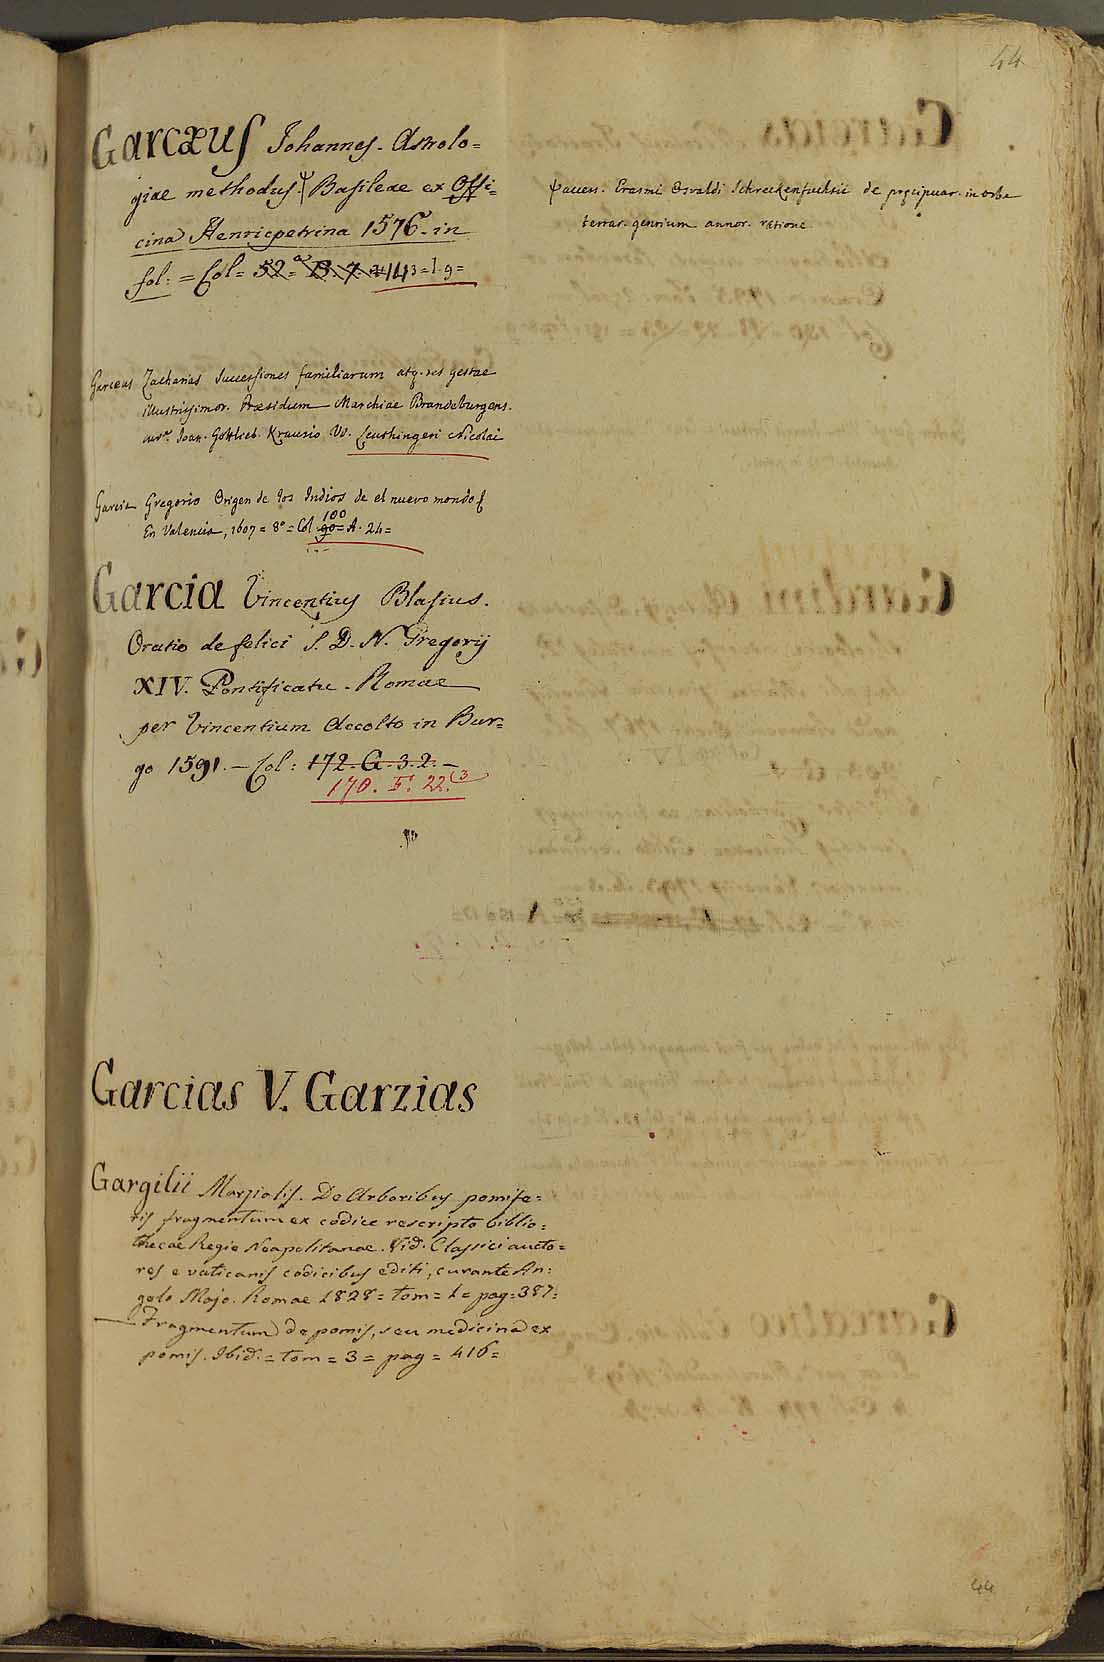 44
Garcæus Johannes. Astrolo=
giae methodus. Ψ Basileae ex Offi=
cina Henricpetrina 1576. in
fol: = Col= 52= B. 7. 143=I.9=
Ψ access. Erasmi Osvaldi Schreckenfuchsii de pręcipuar. in orbe
terrar. gentium annor. ratione
Garcæus Zacharias Successiones familiarum atq. res gestae
illustrissimor. Præsidum Marchiae Brandeburgens.
cur. Joan. Gottlieb. Krausio. VV. Leuthingeri Nicolai
Garcia Gregorio Origen de los Indios de el nuevo mondo
En Valencia, 1607 = 8º = Col. 90 100 = A. 24=
Garcia Vincentius Blasius.
Oratio de felici S. D. N. Gregorij
XIV. Pontificatu. Romae
per Vincentium Accolto in Bur=
go 1591. — Col: 172. G. 3. 2. —
170. F. 22.(3
Garcias V. Garzias
Gargilii Marzialis. De Arboribus pomife=
ris fragmentum ex codice rescripto biblio=
thecae Regie Neapolitanae. Vid. Classici aucto=
res e vaticanis codicibus editi, curante An=
gelo Majo. Romae 1828= tom= 1= pag=387=
— Fragmentum de pomis, seu medicina ex
pomis. Ibid.= tom= 3= pag= 416=
44